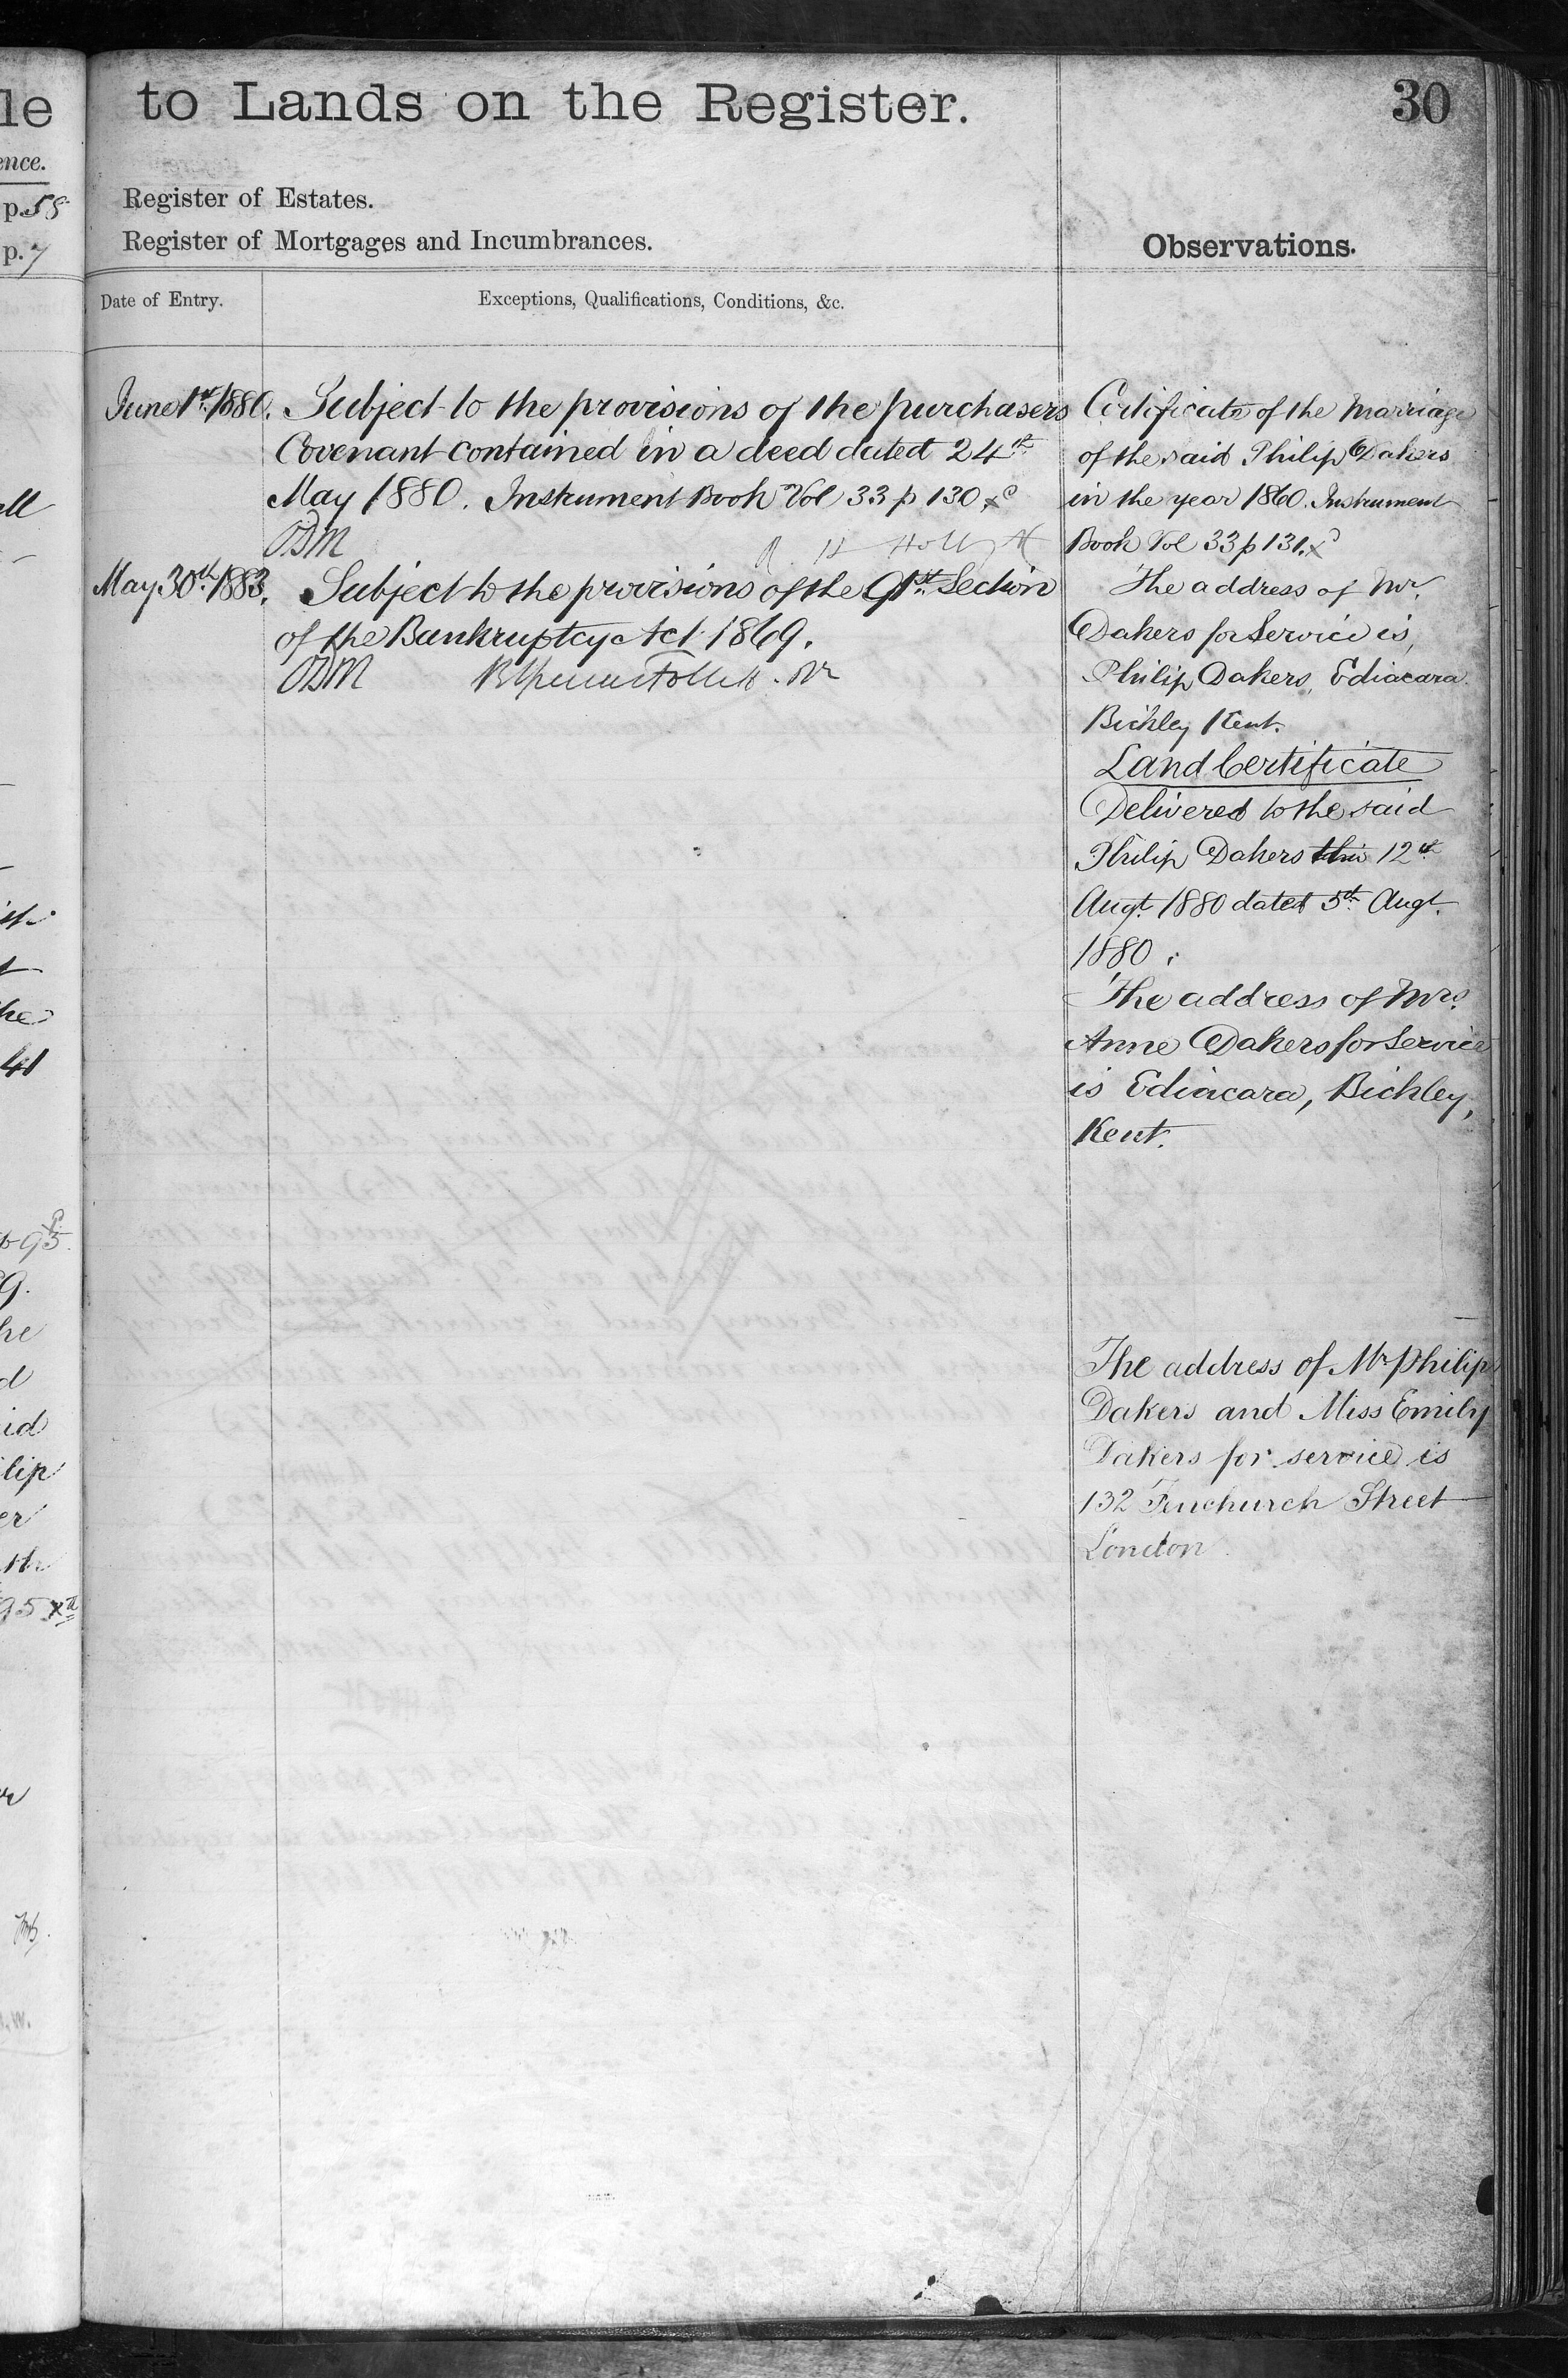 to Lands on the Register.
30
Register of Estates.
Register of Mortgages and Incumbrances.
Observations.
Date of Entry.
Exceptions, Qualifications, Conditions, &c.
June 1st 1880. Subject to the provisions of the purchasers
Covenant contained in a deed dated 24th
May 1880. Instrument Book Vol 33 p 130.
ODM
May 30th 1883. Subject to the provisions of the 91st Section
of the Bankruptcy Act 1869.
ODM
Certificate of the Marriage
of the said Philip Dakers
in the year 1860. Instrument
Book Vol 33 p 131.
The address of Mr.
Dakers for Service is,
Philip Dakers, Ediacara
Bickley Kent.
Land Certificate
Delivered to the said
Philip Dakers this 12th
Augt. 1880 dated 5th Augt.
1880.
The address of Mrs.
Anne Dakers for Service
is Ediacara, Bickley,
Kent.
The address of Mr Philip
Dakers and Miss Emily
Dakers for service is
132 Fenchurch Street
London
le
ence.
p. 58
p. 7
all
he
41
95
9.
he
d
id
lip
er
95